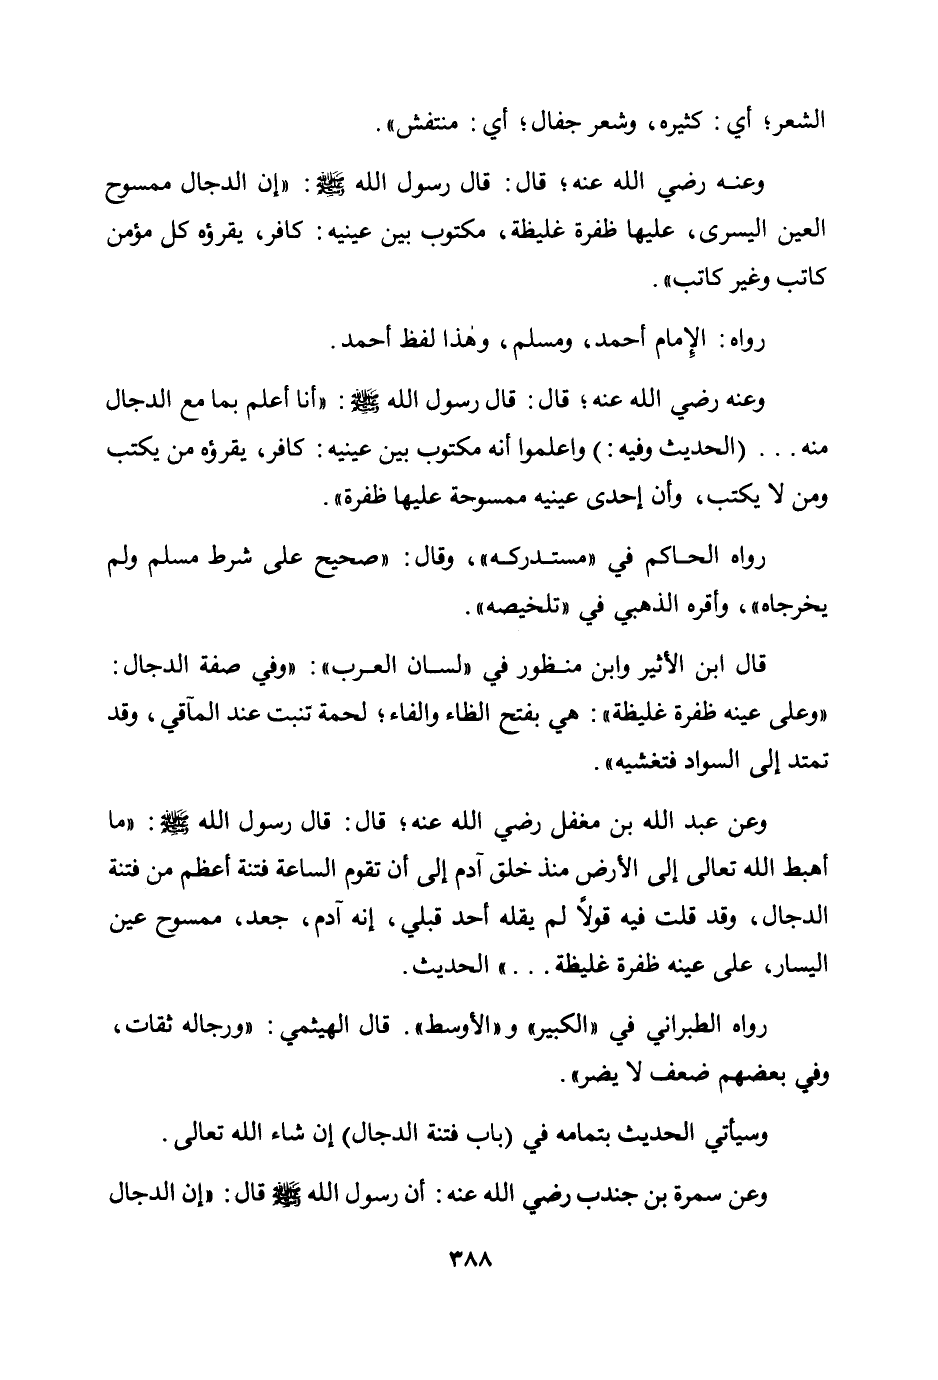 الشعر؛ أي: كثيره، وشعر جفال؛ أي: منتفش».
وعنـه رضي الله عنه؛ قال: قال رسول الله ﷺ: «إن الدجال ممسوح
العين اليسرى، عليها ظفرة غليظة، مكتوب بين عينيه: كافر، يقرؤه كل مؤمن
كاتب وغير كاتب».
رواه: الإمام أحمد، ومسلم، وهٰذا لفظ أحمد.
وعنه رضي الله عنه؛ قال: قال رسول الله ﷺ: «أنا أعلم بما مع الدجال
منه... (الحديث وفيه:) واعلموا أنه مكتوب بين عينيه: كافر، يقرؤه من يكتب
ومن لا يكتب، وأن إحدى عينيه ممسوحة عليها ظفرة».
رواه الحـاكم في «مستـدركـه»، وقال: «صحيح على شرط مسلم ولم
يخرجاه»، وأقره الذهبي في «تلخيصه».
قال ابن الأثير وابن منـظور في «لسـان العـرب»: «وفي صفة الدجال:
«وعلى عينه ظفرة غليظة»: هي بفتح الظاء والفاء؛ لحمة تنبت عند المآقي، وقد
تمتد إلى السواد فتغشيه».
وعن عبد الله بن مغفل رضي الله عنه؛ قال: قال رسول الله ﷺ: «ما
أهبط الله تعالى إلى الأرض منذ خلق آدم إلى أن تقوم الساعة فتنة أعظم من فتنة
الدجال، وقد قلت فيه قولاً لم يقله أحد قبلي، إنه آدم، جعد، ممسوح عين
اليسار، على عينه ظفرة غليظة...» الحديث.
رواه الطبراني في «الكبير» و«الأوسط». قال الهيثمي: «ورجاله ثقات،
وفي بعضهم ضعف لا يضر».
وسيأتي الحديث بتمامه في (باب فتنة الدجال) إن شاء الله تعالى.
وعن سمرة بن جندب رضي الله عنه: أن رسول الله ﷺ قال: «إن الدجال
٣٨٨